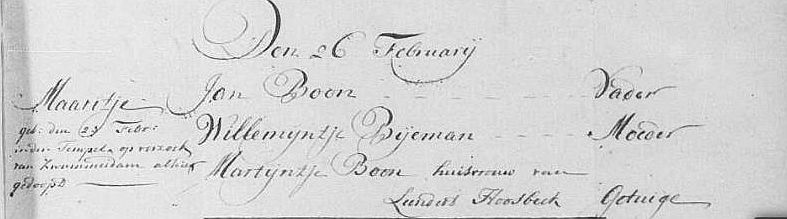 Den 26 February
Maartje
Jan Boon Vader
geb: den 23 Febr:
Willemyntje Byeman Moeder
in den Tempel op verzoek
van Zwammerdam alhier
gedoopt
Martyntje Boon huisvrouw van
Leendert Hoosbeek Getuige